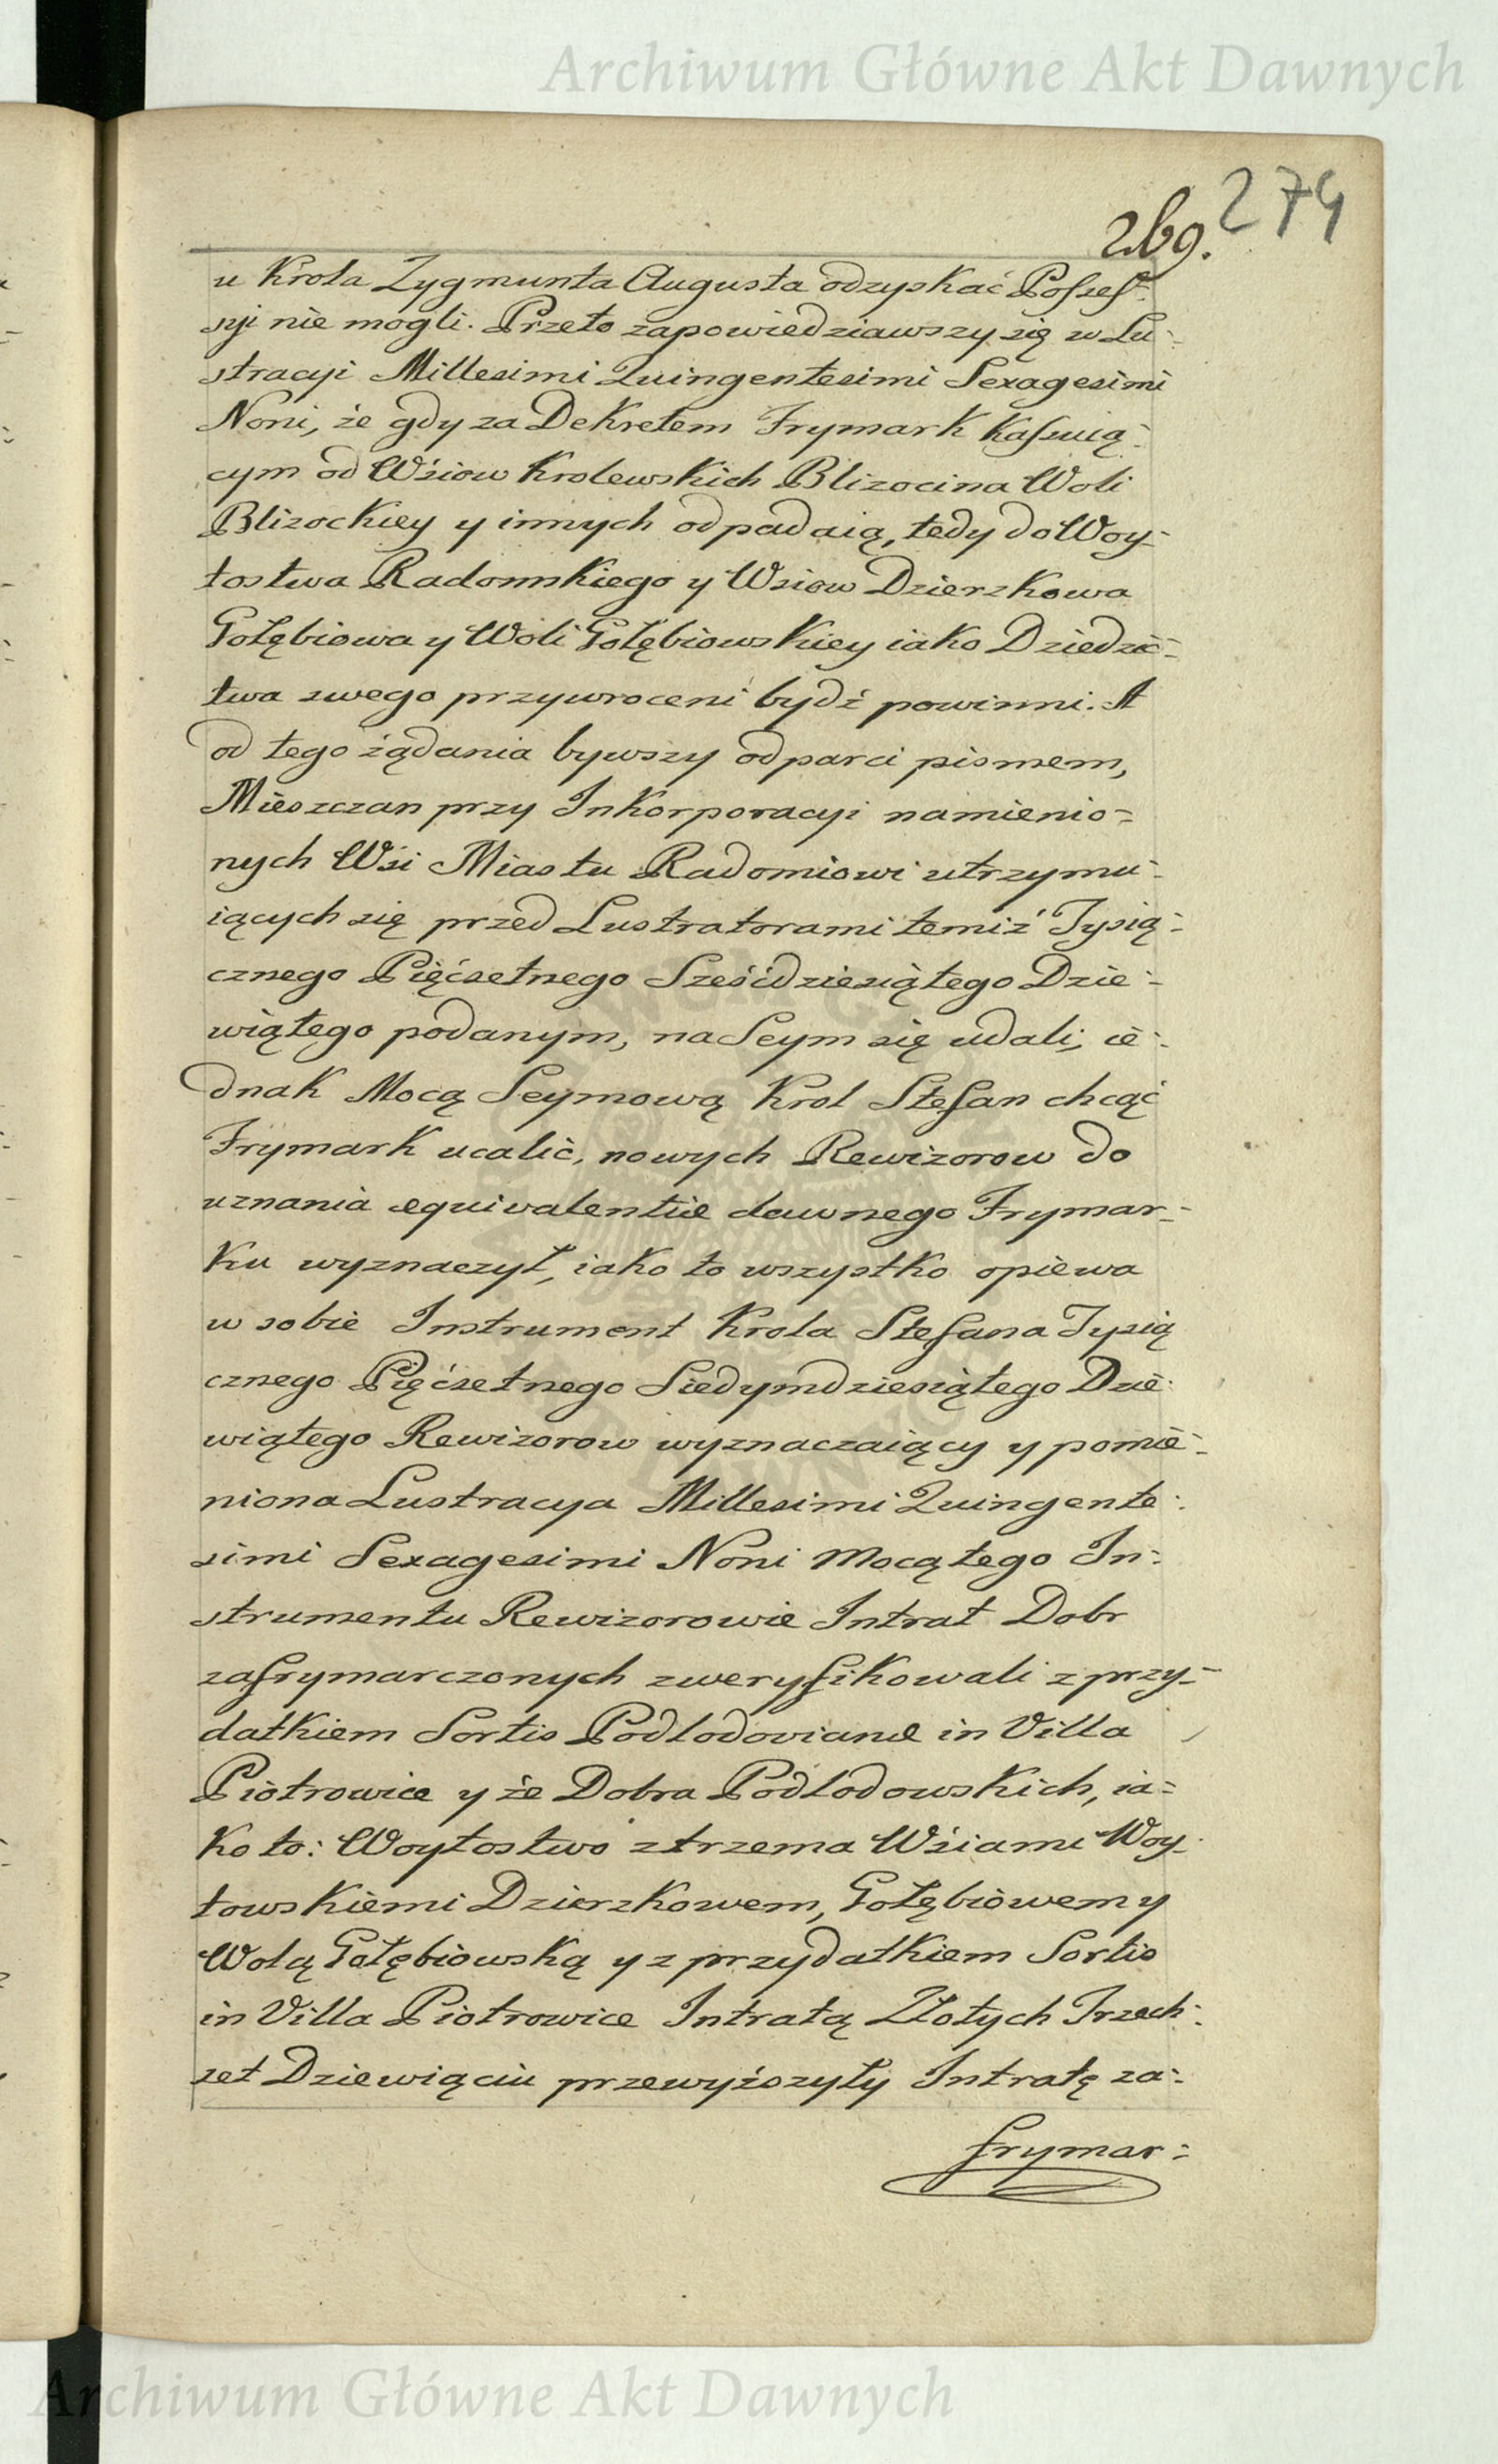 Archiwum Główne Akt Dawnych
274
269.
u Krola Zygmunta Augusta odzyskać Posses-
syi nie mogli. Przeto zapowiedziawszy się w Lu-
stracyi Millesimi Quingentesimi Sexagesimi
Noni, że gdy za Dekretem Frymark Kassuią-
cym od Wsiow Krolewskich Blizocina Woli
Blizockiey y innych odpadaią, tedy do Woy-
tostwa Radomskiego y Wsiow Dzierzkowa
Gołębiowa y Woli Gołębiowskiey iako Dziedzic-
twa swego przywroceni bydź powinni. A
od tego żądania bywszy odparci pismem,
Mieszczan przy Inkorporacyi namienio-
nych Wsi Miastu Radomiowi utrzymu-
iących się przed Lustratorami temiż Tysią-
cznego Pięćsetnego Sześćdziesiątego Dzie-
wiątego podanym, na Seym się udali, ie-
dnak Mocą Seymową Krol Stefan chcąc
Frymark ucalić, nowych Rewizorow do
uznania equivalentie dawnego Frymar-
ku wyznaczył, iako to wszystko opiewa
w sobie Instrument Krola Stefana Tysią
cznego Pięćsetnego Siedymdziesiątego Dzie-
wiątego Rewizorow wyznaczaiący y pomie-
niona Lustracya Millesimi Quingente-
simi Sexagesimi Noni Mocą tego In-
strumentu Rewizorowie Intrat Dobr
zafrymarczonych zweryfikowali z przy-
datkiem Sortis Podlodoviane in Villa
Piotrowice y że Dobra Podlodowskich, ia-
ko to: Woytostwo z trzema Wśiami Woy-
towskiemi Dzierzkowem, Gołębiowem y
Wolą Gołębiowską y z przydatkiem Sortis
in Villa Piotrowice Intratą Złotych Trzech-
set Dziewiąciu przewyższyły Intratę za-
frymar-
Archiwum Główne Akt Dawnych